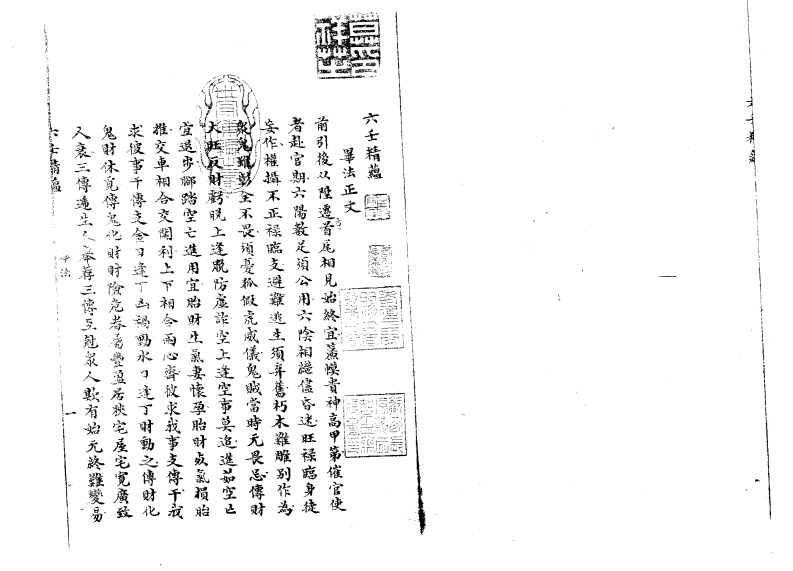 六壬精蘊
畢法正文
前引後从陞遷吉首尾相見始終宜簾幙貴神高甲第催官使
者赴官期六陽數足須公用六陰相繼儘昏迷旺禄臨身徒
妄作權攝不正禄臨支避難逃生須弃舊朽木難雕别作為
衆鬼雖彰全不畏須憂狐假虎威儀鬼賊當時无畏忌傳財
大旺反財虧脱上逢脱防虚詐空上逢空事莫追進茹空亡
宜退步腳踏空亡進用宜胎財生氣妻懷孕胎財死氣損胎
推交車相合交關利上下相合兩心齊彼求我事支傳干我
求彼事干傳支金日逢丁凶禍動水日逢丁財動之傳財化
鬼財休覓傳鬼化財財險危眷屬豐盈居狹宅屋宅寛廣致
人衰三傳遞生人舉荐三傳互尅衆人欺有始无終難變易
六壬精蘊
畢法
一